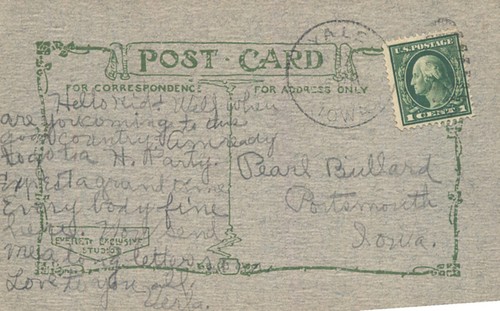 POST CARD
FOR CORRESPONDENCE
FOR ADDRESS ONLY
YALE
IOWA
U.S. POSTAGE
1 CENT 1
Hello Kids Well when
are you coming to our
good country. Am ready
to go to a H. Party.
Expect a grand time
Every body fine
here. You send
me a long letter
Love to you all.
Pearl Bullard
Portsmouth
Iowa.
EVERETT EXCLUSIVE
STUDIO